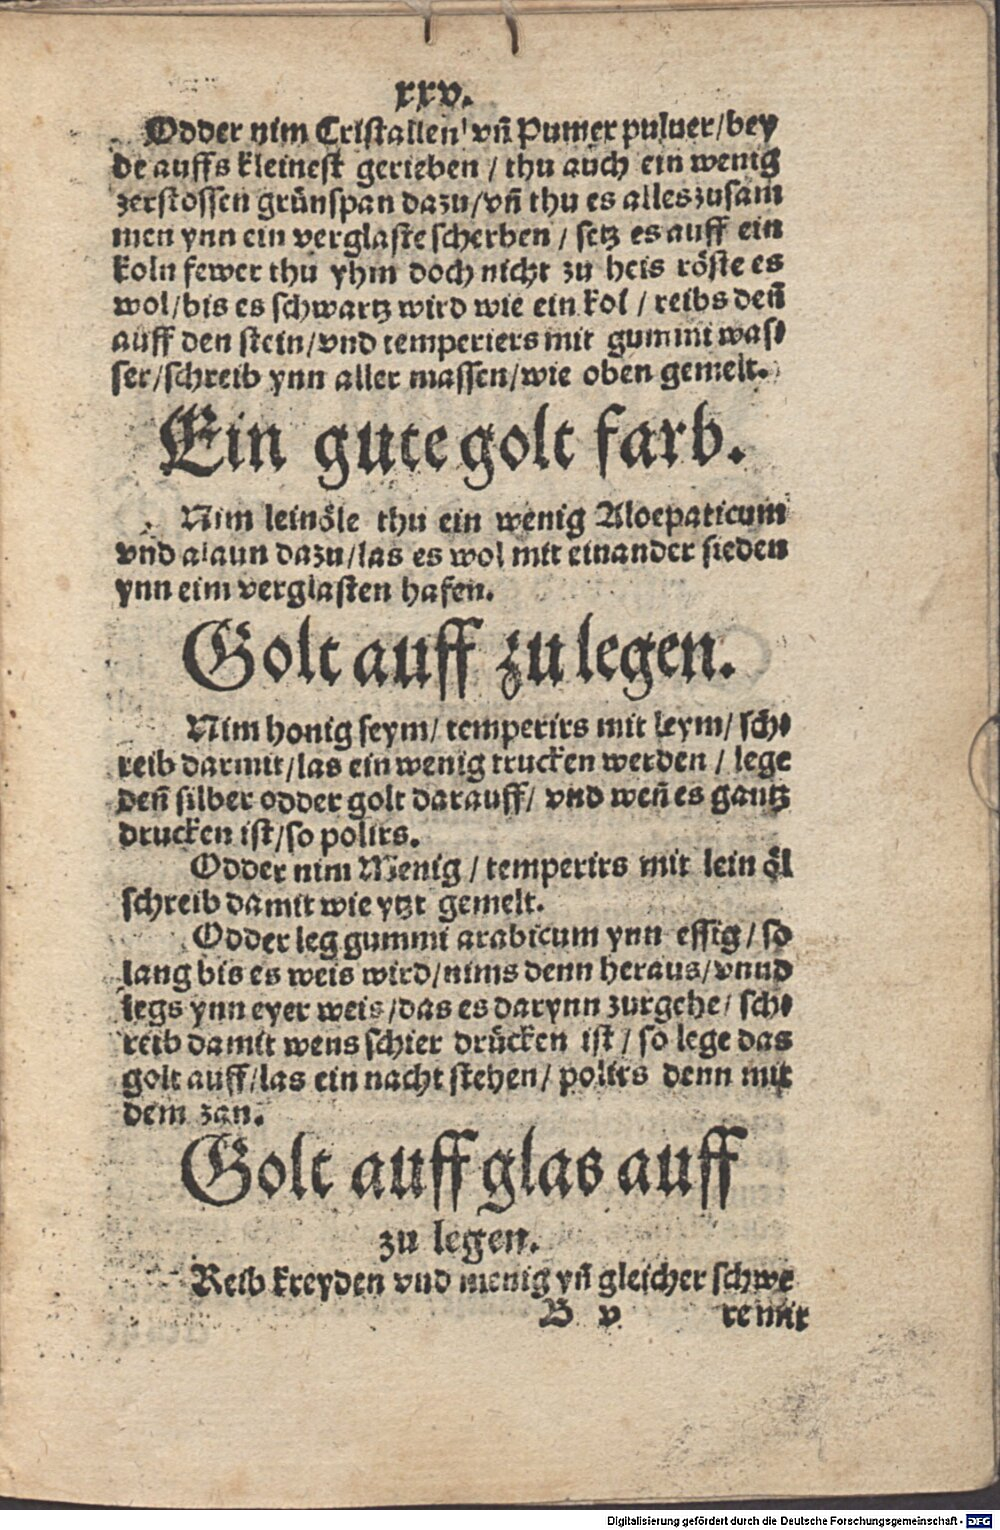 xxv.
Odder nim Cristallen/ vñ Pumer puluer/bey
de auffs kleinest gerieben / thu auch ein wenig
zerstossen grünspan dazu/vñ thu es alles zusam
men ynn ein verglaste scherben / setz es auff ein
koln fewer thu yhm doch nicht zu heis röste es
wol/bis es schwartz wird wie ein kol / reibs deñ
auff den stein/vnd temperiers mit gummi was⸗
ser/schreib ynn aller massen/wie oben gemelt.
Ein gute golt farb.
Nim leinöle thu ein wenig Aloepaticum
vnd alaun dazu/las es wol mit einander sieden
ynn eim verglasten hafen.
Golt auff zu legen.
Nim honig seym/ temperirs mit leym/ sch⸗
reib darmit/las ein wenig trucken werden / lege
deñ silber odder golt darauff/ vnd weñ es gantz
drucken ist/so polirs.
Odder nim Menig / temperirs mit lein öl
schreib damit wie ytzt gemelt.
Odder leg gummi arabicum ynn essig / so
lang bis es weis wird/nims denn heraus/vnnd
legs ynn eyer weis/das es darynn zurgehe/ sch⸗
reib damit wens schier drücken ist / so lege das
golt auff/las ein nacht stehen/ polirs denn mit
dem zan.
Golt auff glas auff
zu legen.
Reib kreyden vnd menig yñ gleicher schwe
B v re mit
Digitalisierung gefördert durch die Deutsche Forschungsgemeinschaft - DFG